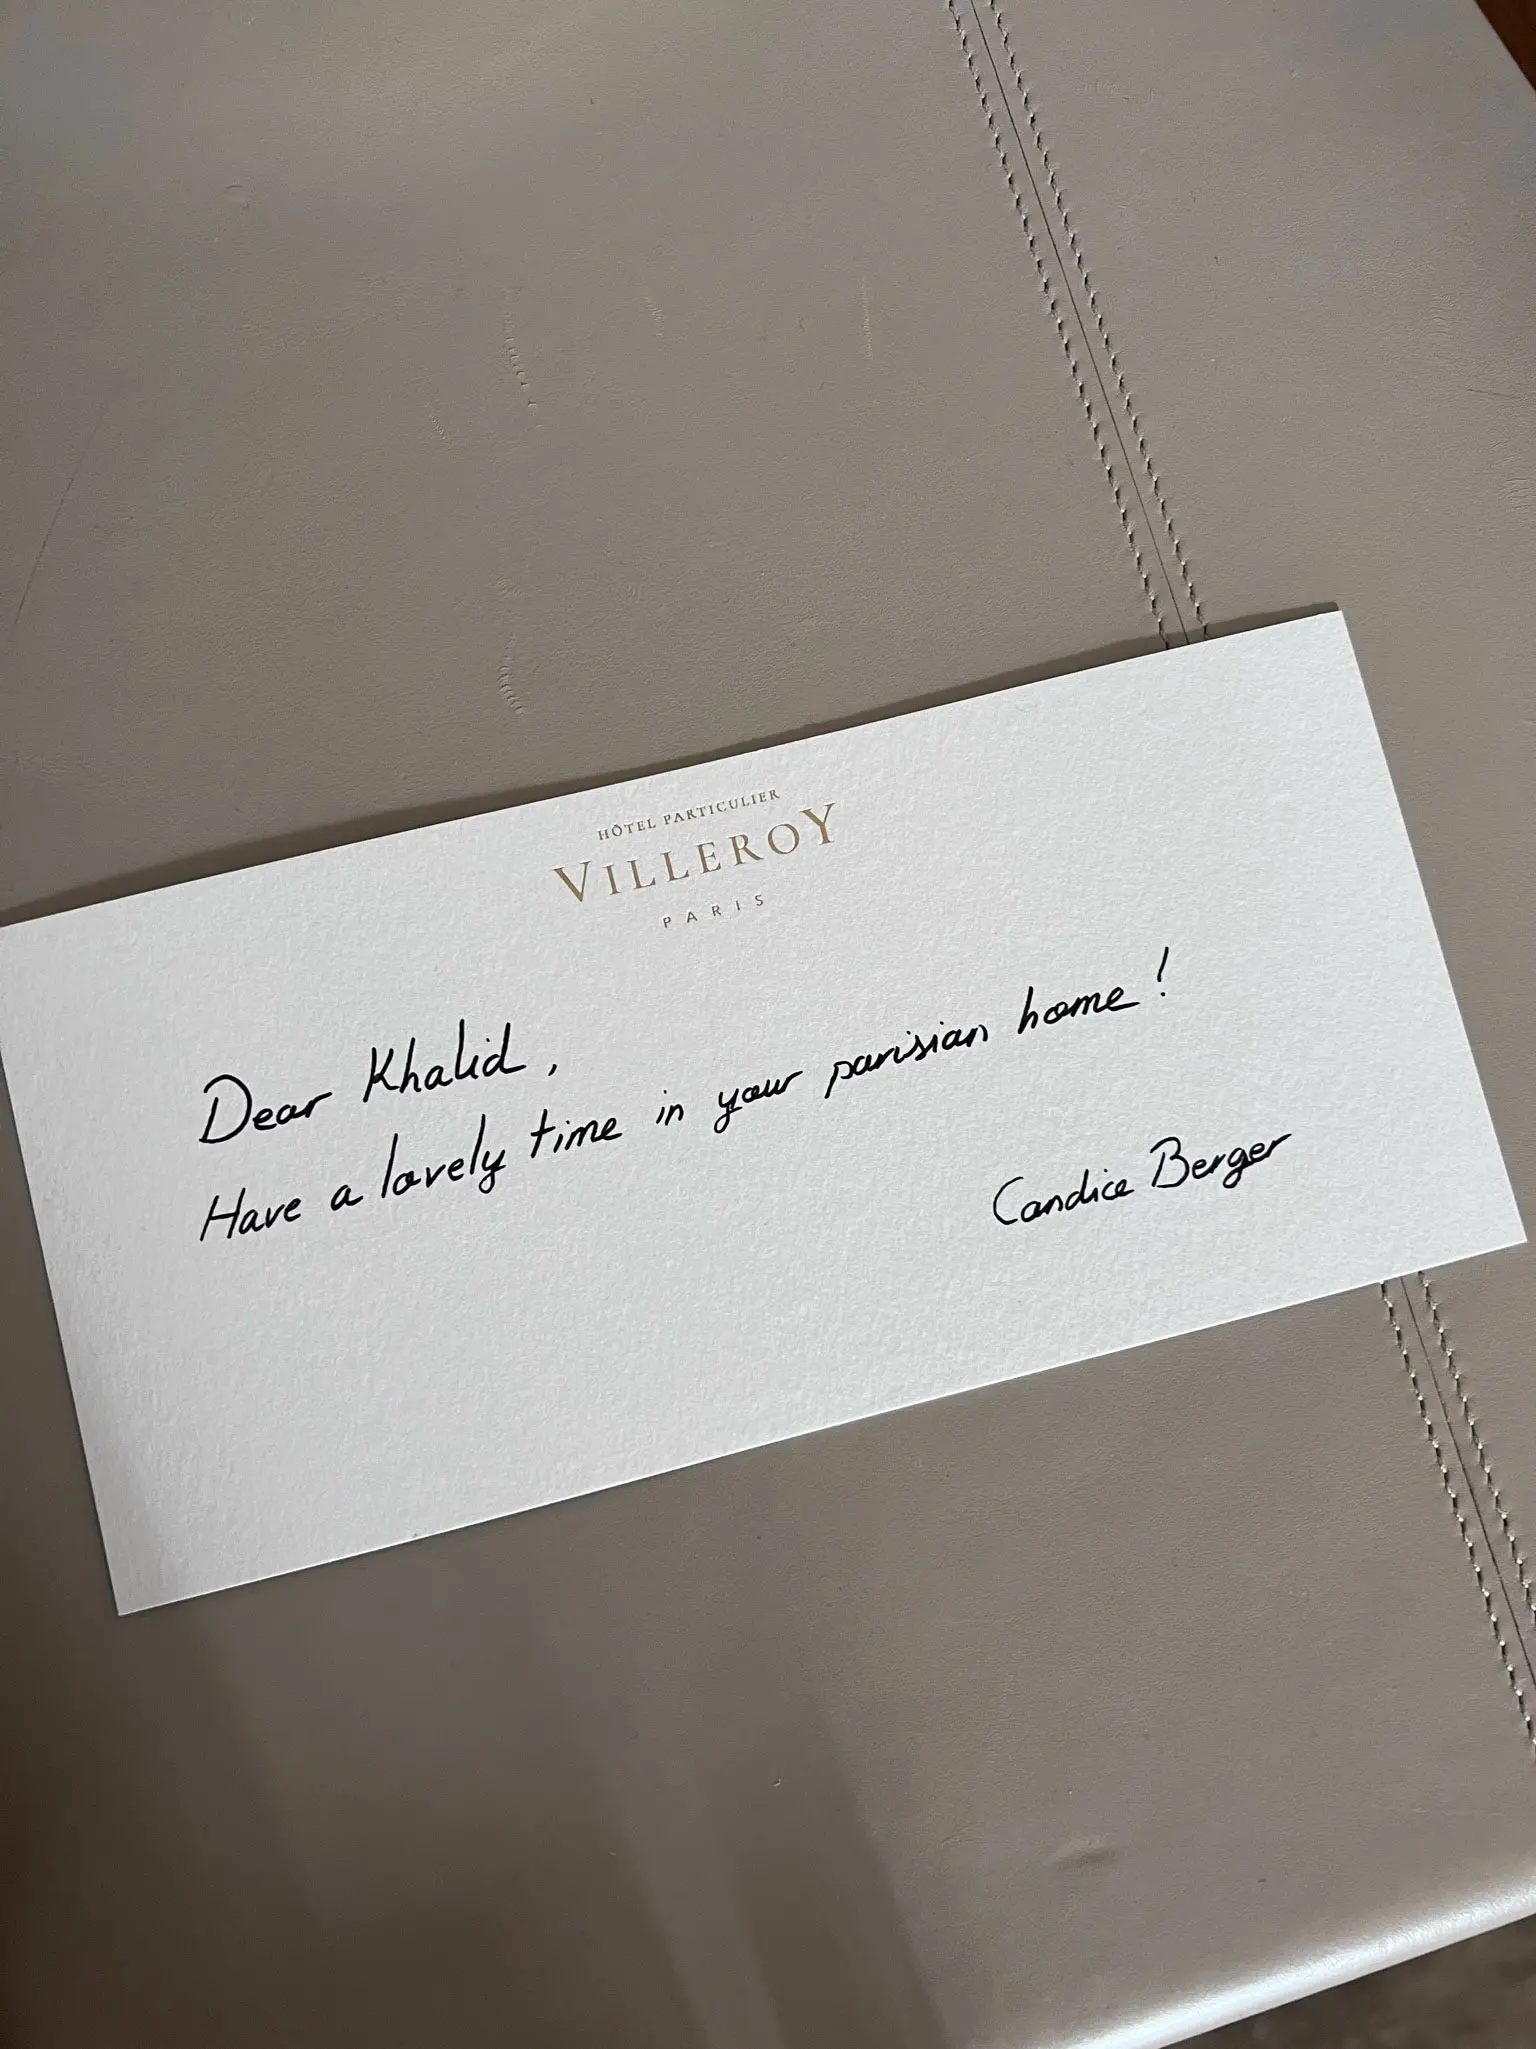 HÔTEL PARTICULIER
VILLEROY
PARIS
Dear Khalid,
Have a lovely time in your parisian home!
Candice Berger